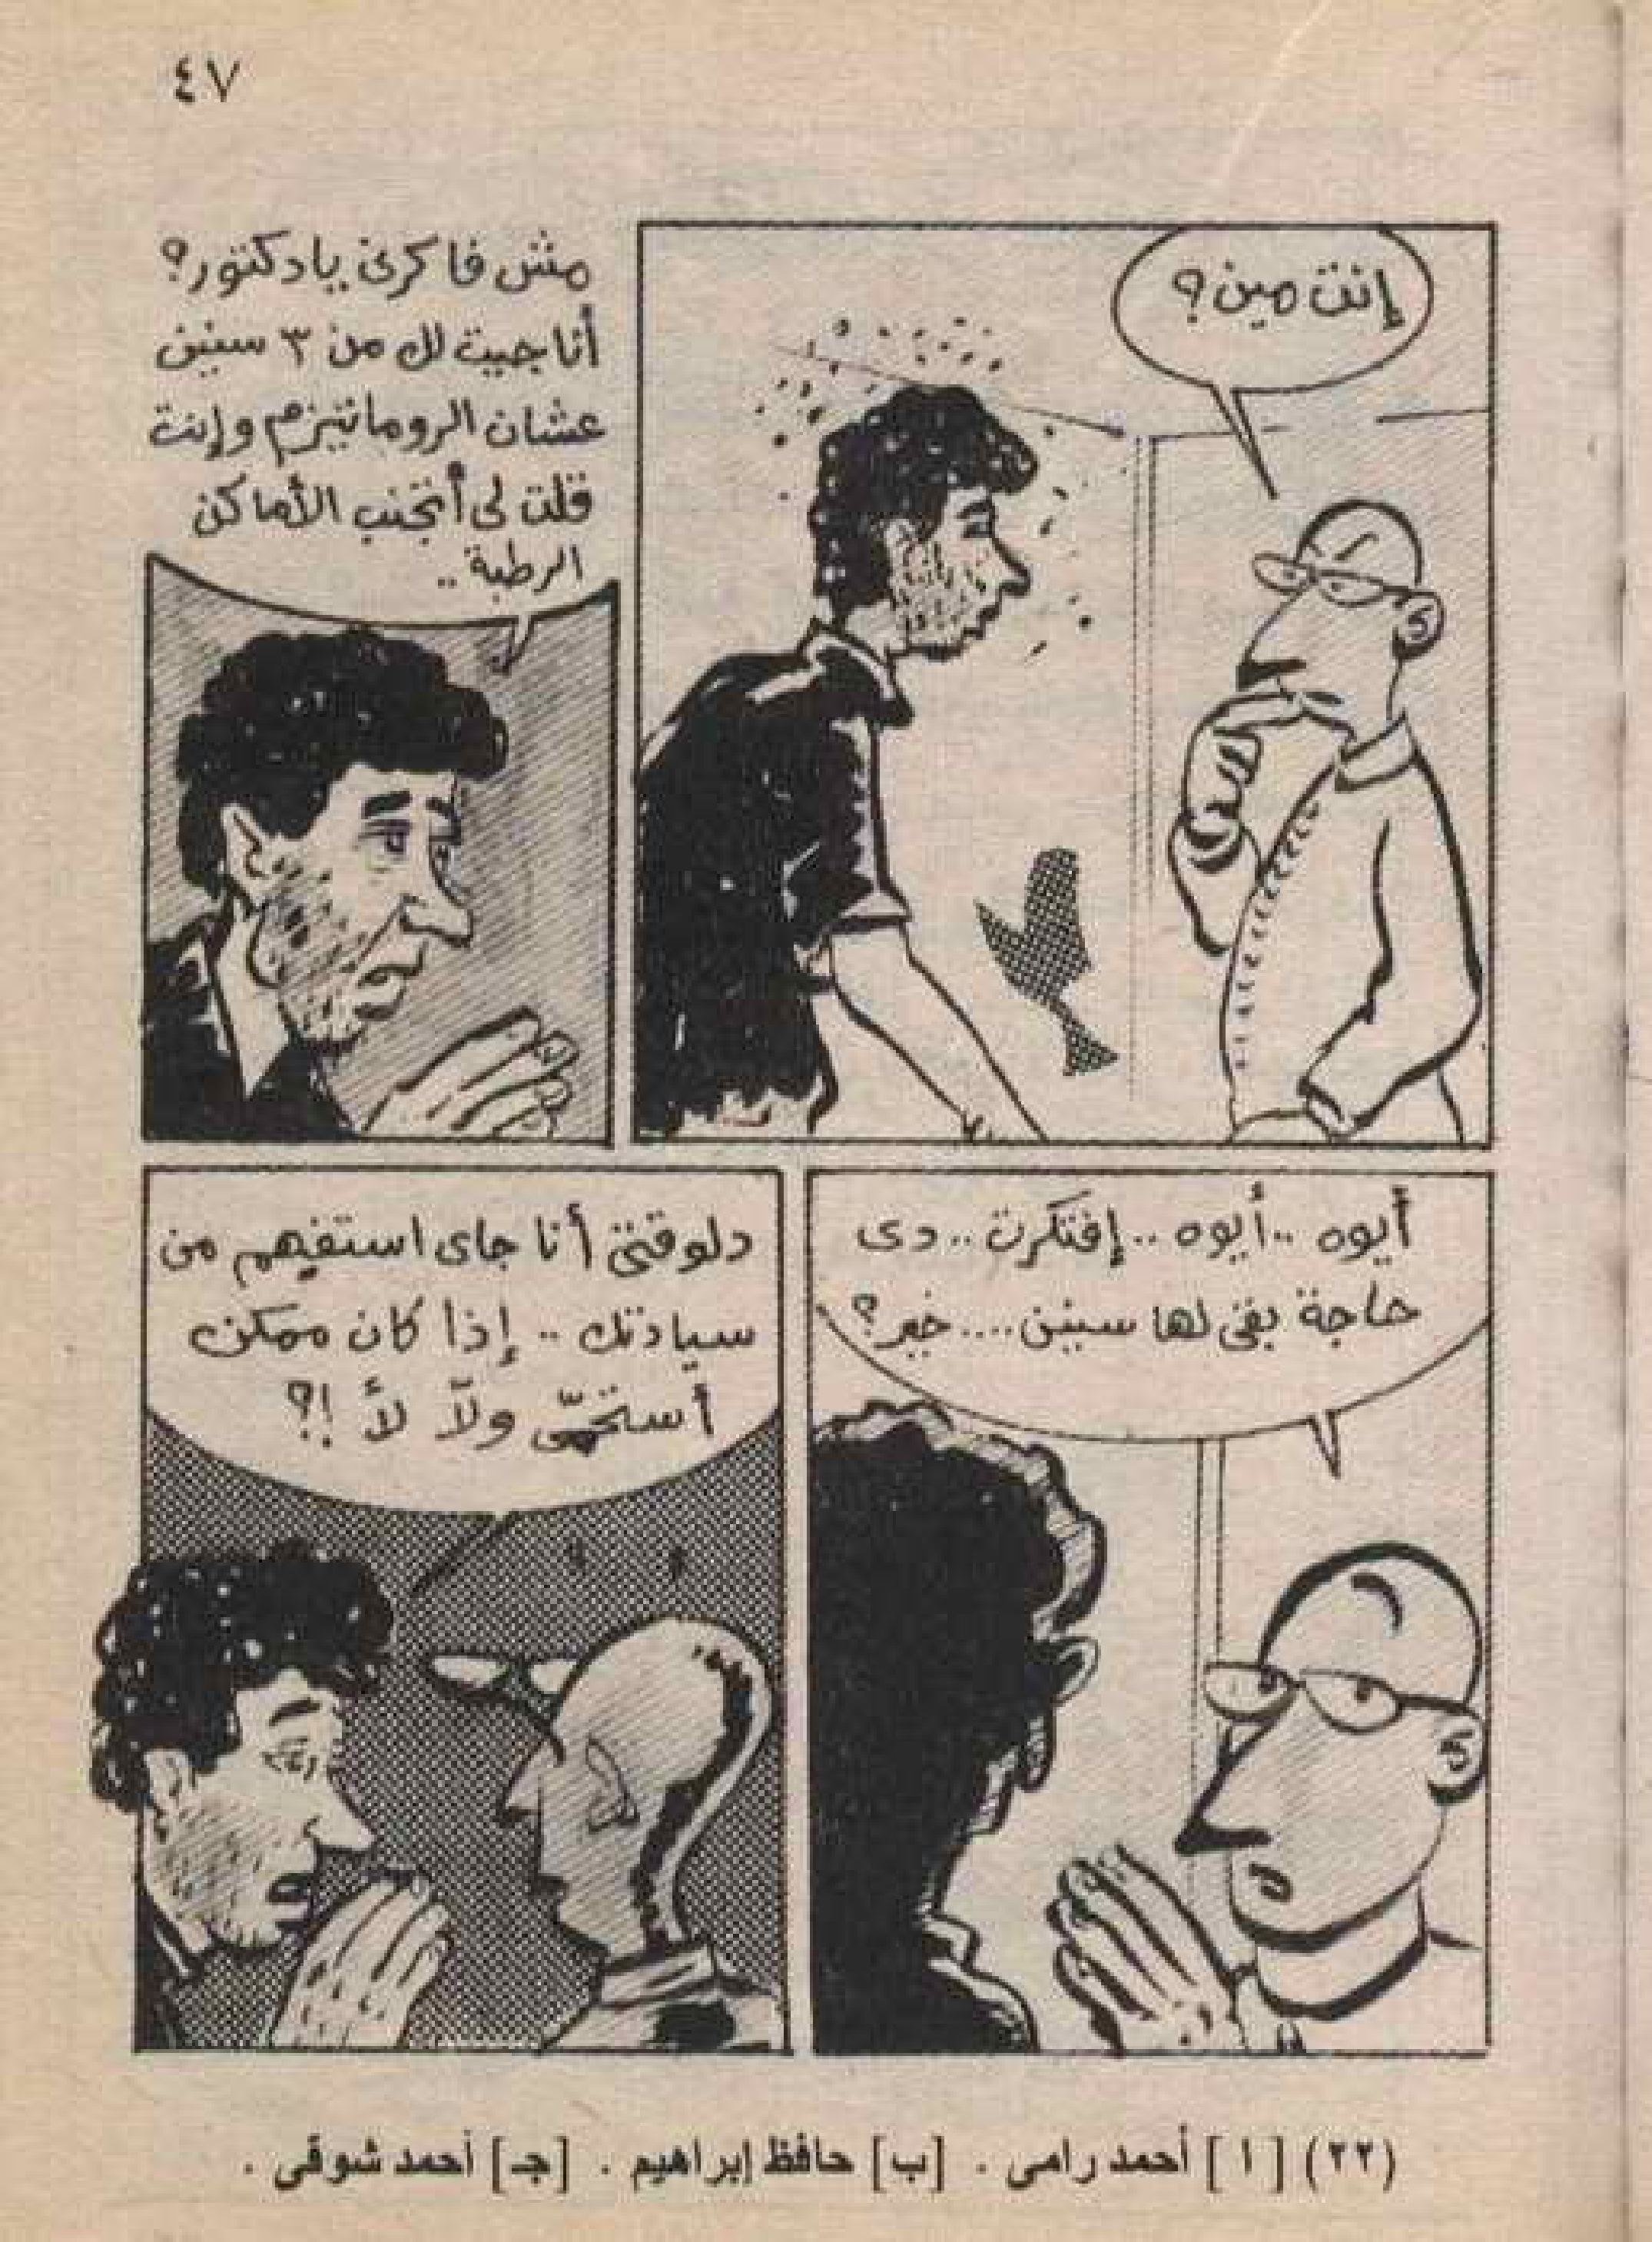 ٤٧
إنت مين؟
مش فاكرنى يا دكتور؟
أنا جيت لك من ٣ سنين
عشان الروماتيزم وإنت
قلت لى أتجنب الأماكن
الرطبة..
أيوه..أيوه..إفتكرت..دى
حاجة بقى لها سنين....خير؟
دلوقتى أنا جاى استفهم من
سيادتك.. إذا كان ممكن
أستحمّى ولّا لأ !؟
(٢٢) [ ا ] أحمد رامى . [ب] حافظ إبراهيم . [جـ] أحمد شوقى .